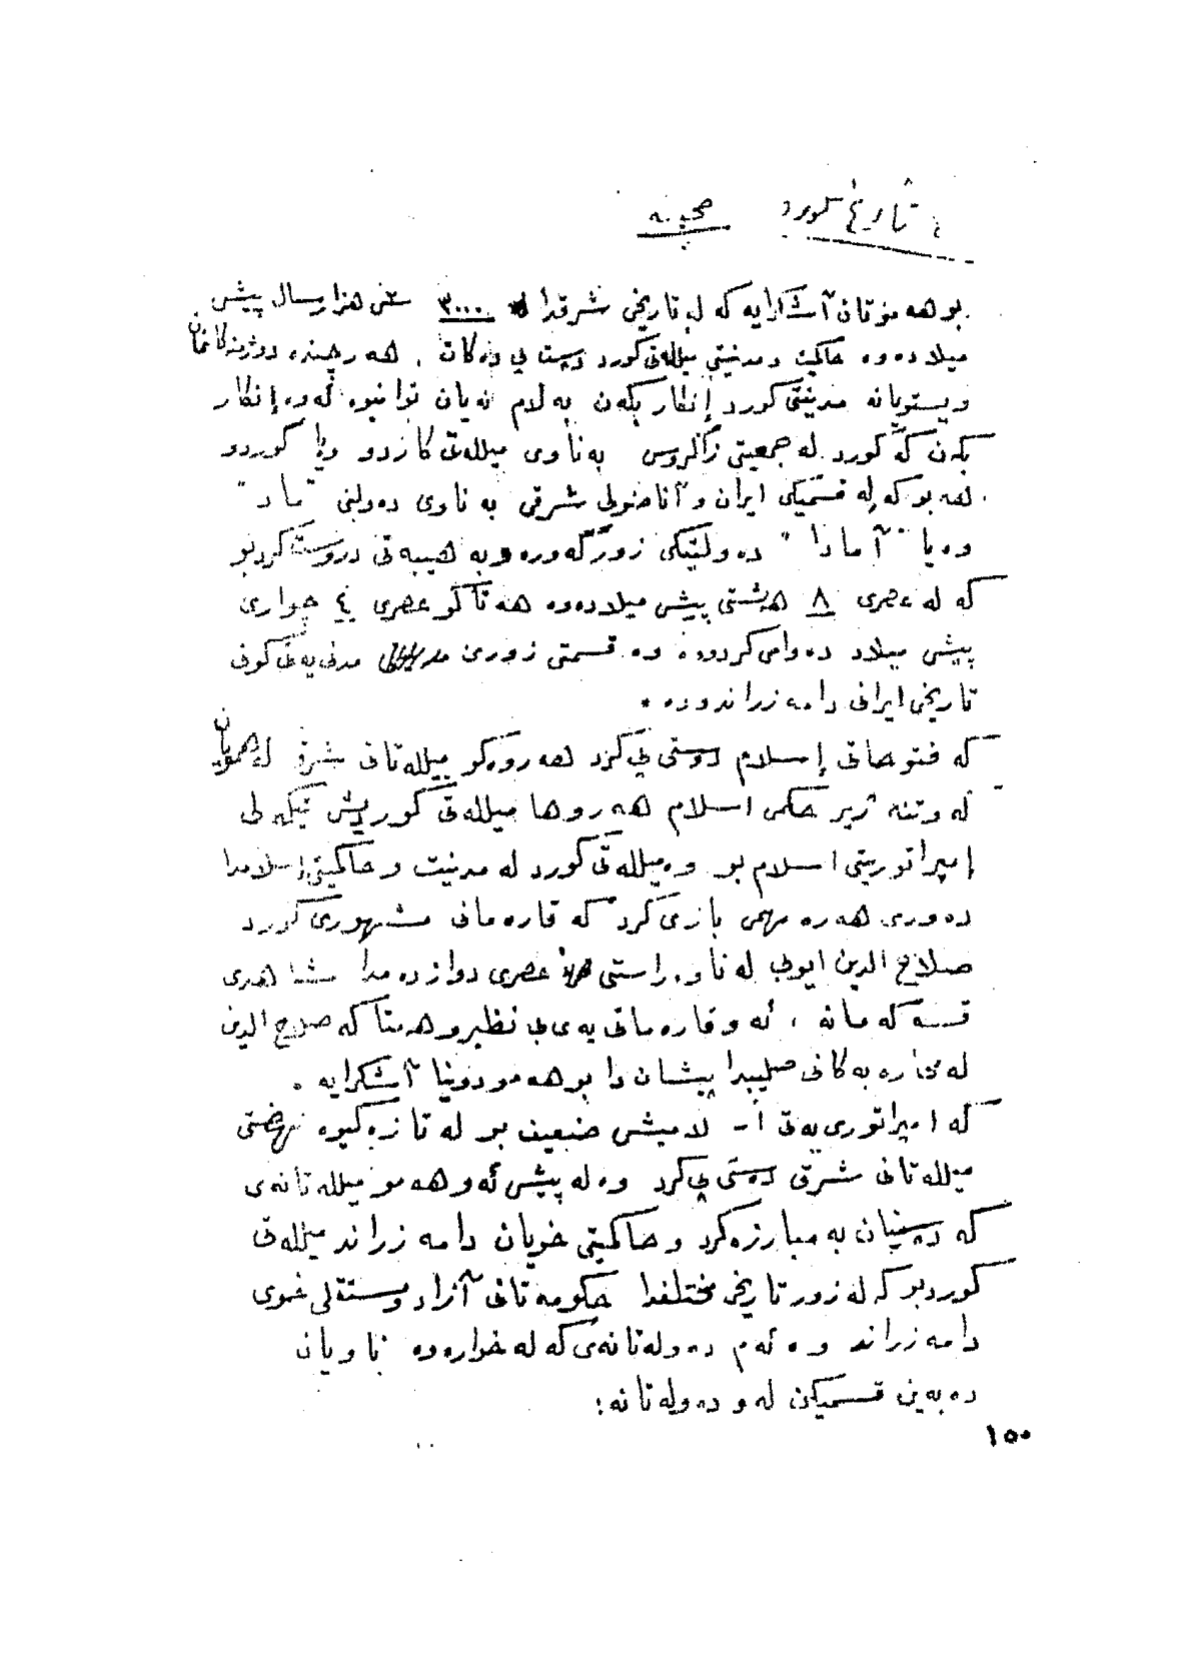 تاریخ کورد
بو هه مۆتان آشکرایه که له تاریخی شرقدا ٣٠٠٠ سێ هزار سال پیشی
میلاده وه حاکمیت و مدنیتی میللەتی کورد دست پی ده کات . هه رچنده دوژمنەکانمان
ویستویانه مدنیتی کورد إنکار بکەن به لام نه یان توانیوه ئه وه إنکار
بکەن که کورد له جمعیتی زاگروس به ناوی میللەتی کازدو ویا کوردو
هه بو که له قسمیکی ایران و آناضولی شرقی به ناوی ده ولتی "ماد"
وه یا "آمادا" ده ولتیکی زۆر گه وره و به هیبه تی دروست کردبو
که له عصری ٨ هه شتی پیشی میلاده وه هه تاکو عصری ٤ چواری
پیشی میلاد ده وامی کردوه . وه قسمتی زوری مدنی یه تی کونی
تاریخی ایرانی دا مه زراندوه .
که فتوحاتی إسلام دستی پی کرد هه روه کو میلله تانی شرق له همویان
که وتنه ژیر حکمی اسلام هه روها میلله تی کوردیش تیکه لی
إمپراتوریتی اسلام بو وه میلله تی کورد له مدنیت و حاکمیتی إسلامدا
ده وری هه ره مهمی بازی کرد که قاره مانی مشهوری کورد
صلاح الدین ایوبی له ناوه راستی عصری دوازده مدا شاهدی
قسه که مانه ، ئه و قاره مانی یه ی بی نظیر و همتا که صلاح الدین
له محاره به کانی صلیبدا پیشان دا بو هه مو دونیا آشکرایه .
که امپراتوری یه تی إسلامیش ضعیف بو له تازه کیوه نهضتی
میلله تانی شرقی ده ستی پی کرد وه له پیشی ئه و هه مو میلله تانه ی
که دستیان به مبارزه کرد و حاکمیتی خویان دا مه زراند میلله تی
کورد بو که له زور تاریخی مختلفدا حکومه تانی آزاد و مستقلی خوی
دا مه زراند وه ئه م ده وله تانه ی که له خواره وه ناویان
ده به ین قسمیکن له و ده وله تانه :
١٥٠